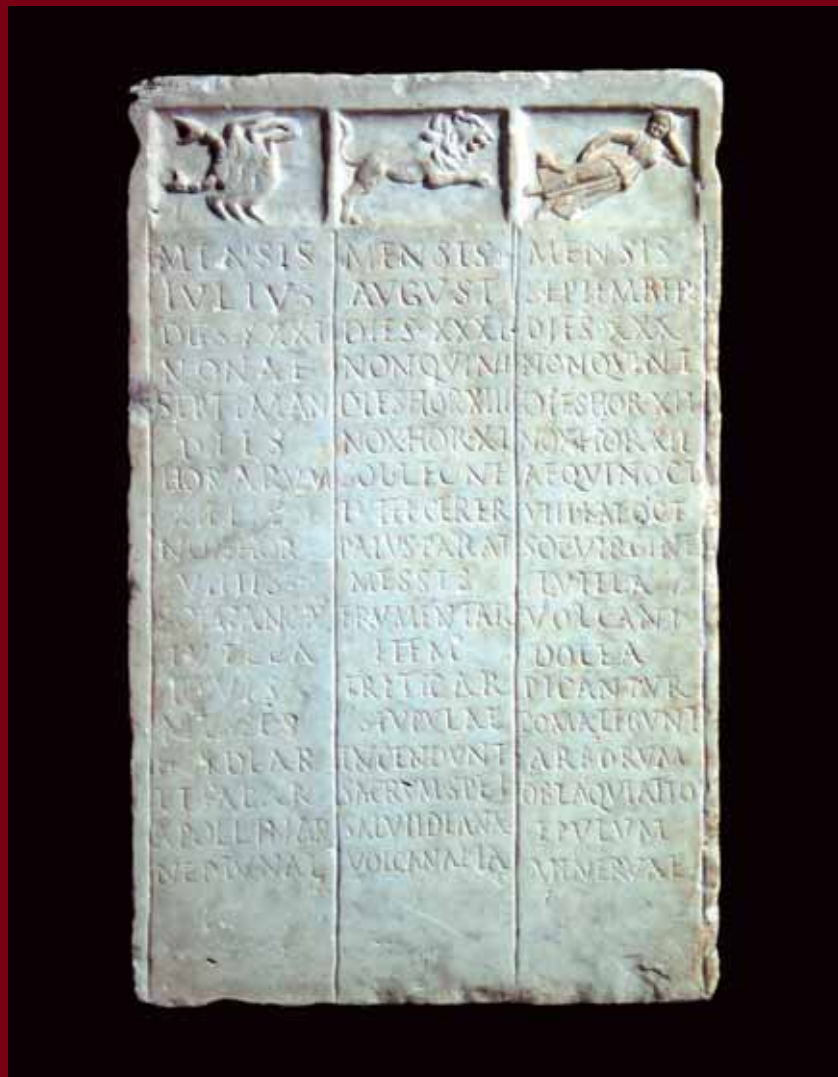 MENSIS
IVLIVS
DIES XXXI
NONAE
SEPTIMAN
DIES
HORARVM
NOX HOR
VIIIIS
SOL CANCR
TVTELA
IOVIS
APOLLINAR
NEPTVNAL
MENSIS
AVGVST
DIES XXXI
NON QVINT
DIES HOR XIII
NOX HOR XI
SOL LEONE
TVTEL CERER
PALVS PARAT
MESSES
FRVMENTAR
ITEM
TRITICAR
STVPVLAE
INCENDVNT
SACRVM SPEI
SALVTI DIANAE
VOLCANALIA
MENSIS
SEPTEMBER
DIES XXX
NON QVINT
DIES HOR XII
NOX HOR XII
AEQVINOCT
VIII KAL OCT
SOL VIRGINE
TVTELA
VOLCANI
DOLEA
PICANTVR
POMA LEGVNT
ARBORVM
OBLAQVIATIO
EPVLVM
MINERVAE